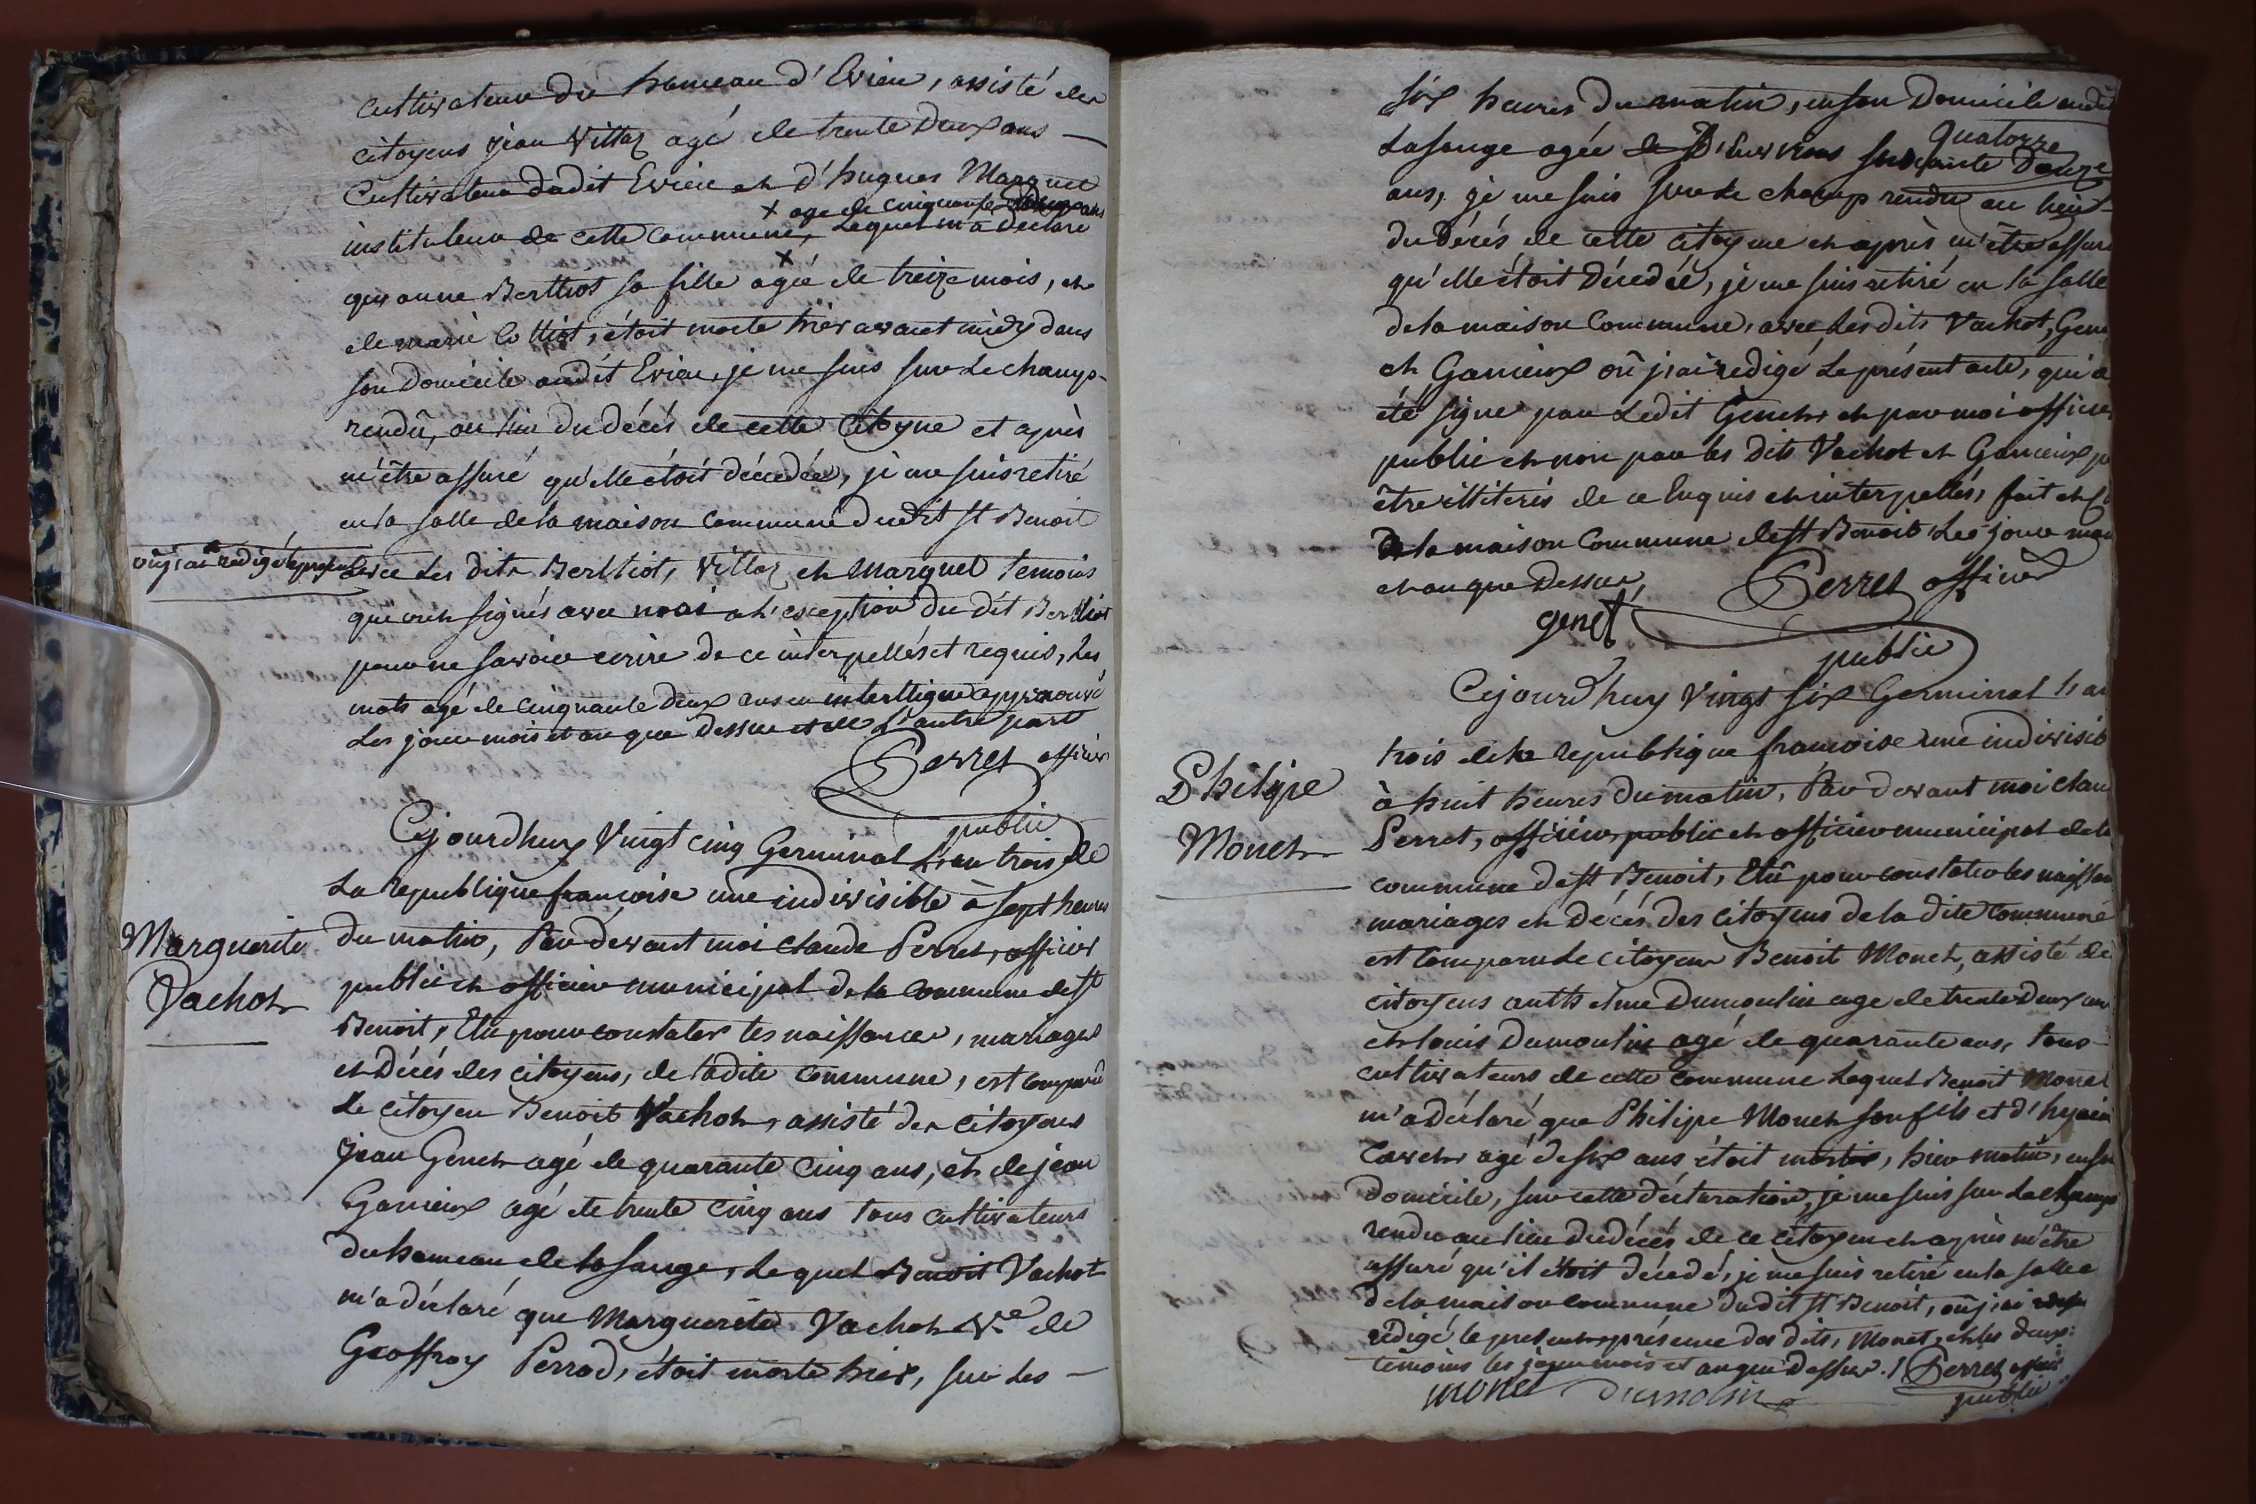 cultivateur du hameau d'Evieu, assisté des
citoyens jean Vittoz agé de trente Deux ans
Cultivateur dudit Evieu et d'hugues Marquet
x agé de cinquante Deux ans
instituteur de cette commune, Lequel m'a Déclaré
x
que anne Berthiot sa fille agée de treize mois, et
de marie Colliot, étoit morte hier avant midy dans
son Domicile audit Evieu, je me suis sur Le champ
rendû, au lieu du décés de cette Citoyne et après
m'être assuré qu'elle étoit décedée, je me suis retiré
en la salle de la maison commune dudit St Benoit
oû j'ai rédigé le présent
avec Les dits Berthiot, Vittoz et Marquet temoins
que ont signés avec moi a l'exception du dit Berthiot
pour ne savoir ecrire de ce interpellés et requis, Les
mots agé de cinquante Deux ans en interlligne approuvé
Les jour mois et an que dessus et de L'autre part
Perret officier
public
Cejourdhuy Vingt cinq Germinal L'an trois de
La republique francoise une indivisible à sept heures
Marguerite
Vachot
du matin, Par devant moi claude Perret, officier
public et officier municipal de la commune de St
Benoit, Elu pour constater les naissances, mariages
et Décés des citoyens, de ladite commune, est comparu
Le citoyen Benoit Vachot, assisté des citoyens
jean Genet agé de quarante cinq ans, et de jean
Ganieux agé de trente cinq ans tous cultivateurs
du hameau de la sauge, Lequel Benoit Vachot
m'a déclaré que Marguerite Vachot Ve de
Geoffroy Perrod, étoit morte hier, sur Les
six heures du matin, en son Domicile audit
Lasauge agée de D'Environ soixante Douze
quatorze
ans, je me suis sur Le champ rendu au lieu
du Décés de cette citoyenne et après m'être assuré
qu'elle étoit Décedée, je me suis retiré en la salle
de la maison Commune, avec Les dits Vachot, Gen
et Ganieux oû j'ai redigé Le présent acte, qui a
été signé par Ledit Genet et par moi officier
public et non par les Dits Vachot et Ganieux p
être illiterés de ce Enquis et interpellés, fait en
de la maison Commune de St Benoit Les jour mois
et an que Dessus,
Perret officier
genet
public
Cejourdhuy Vingt six Germinal L'an
trois de la republique francoise une indivisib
Philipe
Monet
à huit heures du matin, Par devant moi clau
Perret, officier public et officier municipal de la
commune de St Benoit, Elû pour constater les naissan
mariages et Décés des citoyens de la dite Commune
est Comparu Le citoyen Benoit Monet, assisté de
citoyens anthelme Dumoulin agé de trente Deux an
et louis Dumoulin agé de quarante ans, tous
cultivateurs de cette commune Lequel Benoit Monet
m'a déclaré que Philipe Monet son fils et d'
agé de six ans étoit mortes, hier matin, en son
Domicile, sur cette déclaration, je me suis sur Le champ
rendu au lieu du décés de ce citoyen et après m'être
assuré qu'il étoit décedé, je me suis retiré en la salle
de la maison commune dudit St Benoit, oû j'ai
rédigé le present présence des dits, Monet, et les deux
temoins les jour mois et an que dessus. Perret officier
public
mone Dumolin